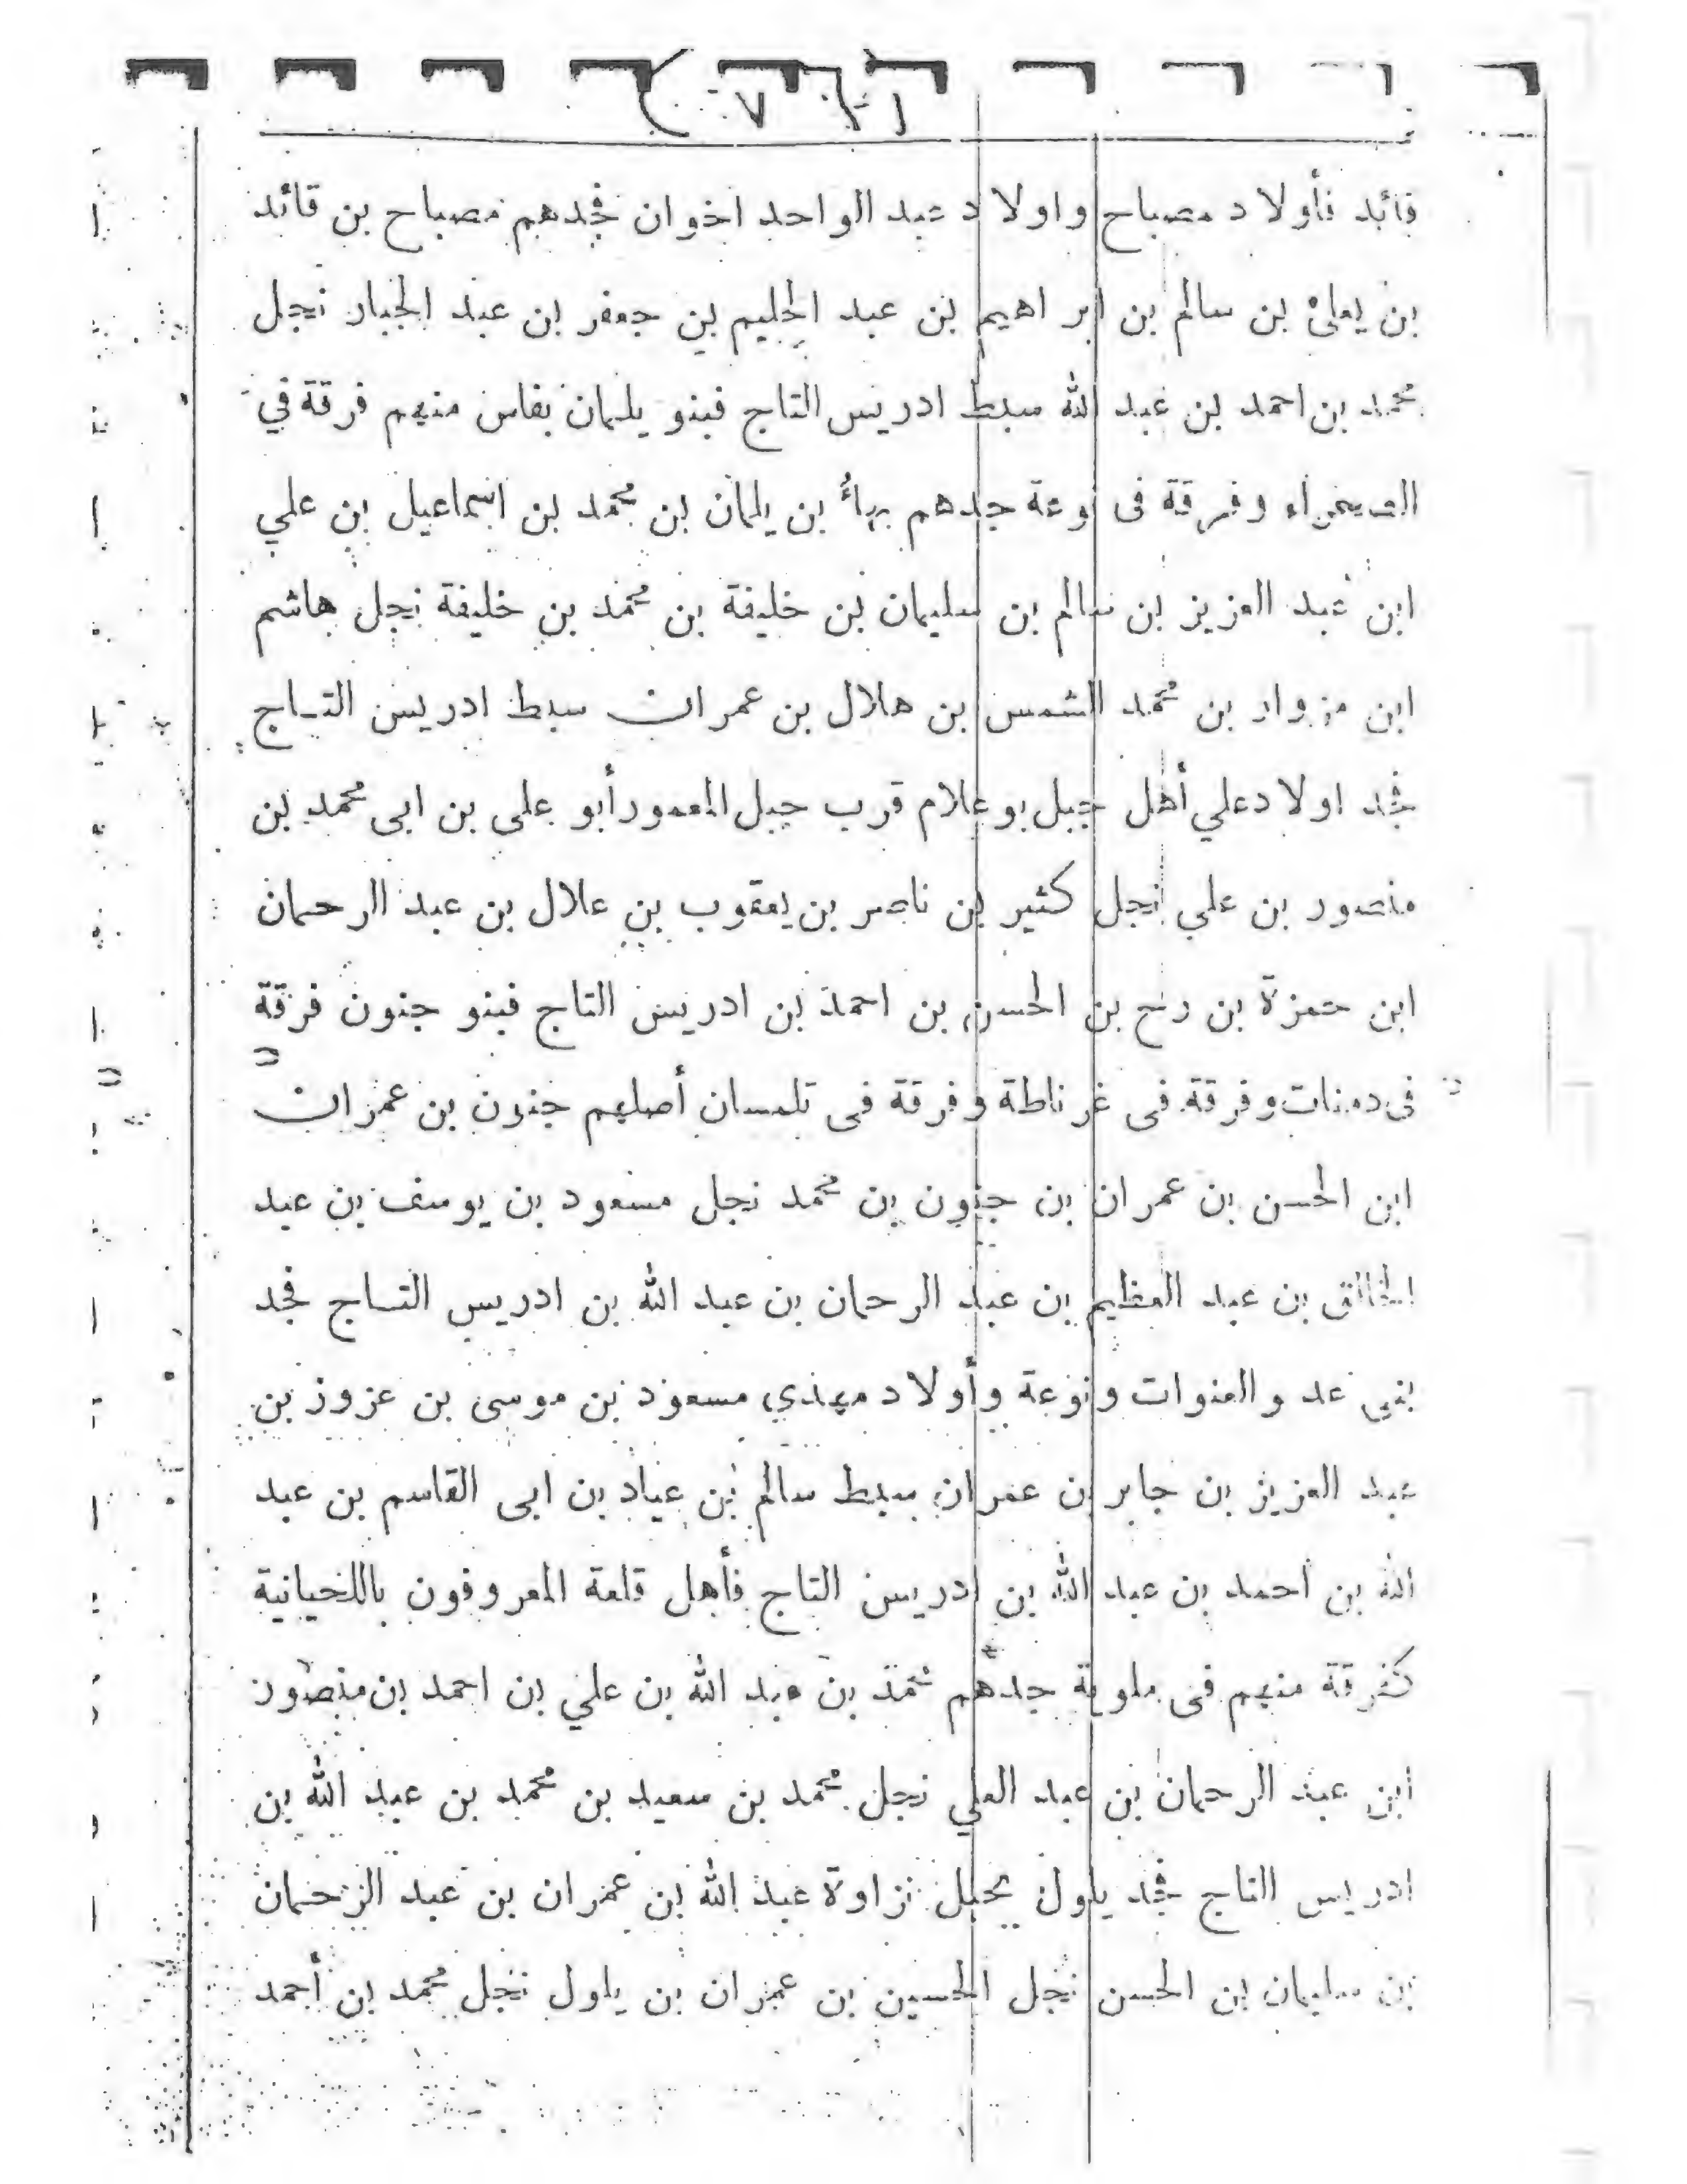 قائد فأولاد مصباح واولاد عبد الواحد اخوان فجدهم مصباح بن قائد
بن يعلى بن سالم بن ابراهيم بن عبد الحليم بن جعفر بن عبد الجبار نجل
محمد بن احمد بن عبد الله سبط ادريس التاج فبنو يلمان بفاس منهم فرقة في
الصحراء وفرقة فى نوعة جدهم بن يلمان بن محمد بن اسماعيل بن علي
ابن عبد العزيز بن سالم بن سليمان بن خليفة بن محمد بن خليفة نجل هاشم
ابن مزوار بن محمد الشمس بن هلال بن عمران سبط ادريس التاج
فجد اولاد علي أهل جبل بوعلام قرب جبل المعمور أبو على بن ابى محمد بن
منصور بن علي نجل كثير بن ناصر بن يعقوب بن علال بن عبد الرحمان
ابن حمزة بن رح بن الحسن بن احمد بن ادريس التاج فبنو جنون فرقة
فى دمنات وفرقة فى غرناطة وفرقة فى تلمسان أصلهم جنون بن عمران
ابن الحسن بن عمران بن جنون بن محمد نجل مسعود بن يوسف بن عبد
الخالق بن عبد العظيم بن عبد الرحمان بن عبد الله بن ادريس التاج فجد
بنى عد والعنوات ونوعة وأولاد مهدي مسعود بن موسى بن عزوز بن
عبد العزيز بن جابر بن عمران سبط سالم بن عياد بن ابى القاسم بن عبد
الله بن احمد بن عبد الله بن ادريس التاج فأهل قلعة المعروفون باللخيانية
كفرقة منهم فى ملوية جدهم محمد بن عبد الله بن علي بن احمد بن منصور
ابن عبد الرحمان بن عبد العلي نجل محمد بن سعيد بن محمد بن عبد الله بن
ادريس التاج فجد ياول بجبل زاوة عبد الله بن عمران بن عبد الرحمان
بن سليمان بن الحسن نجل الحسين بن عمران بن ياول نجل محمد بن أحمد